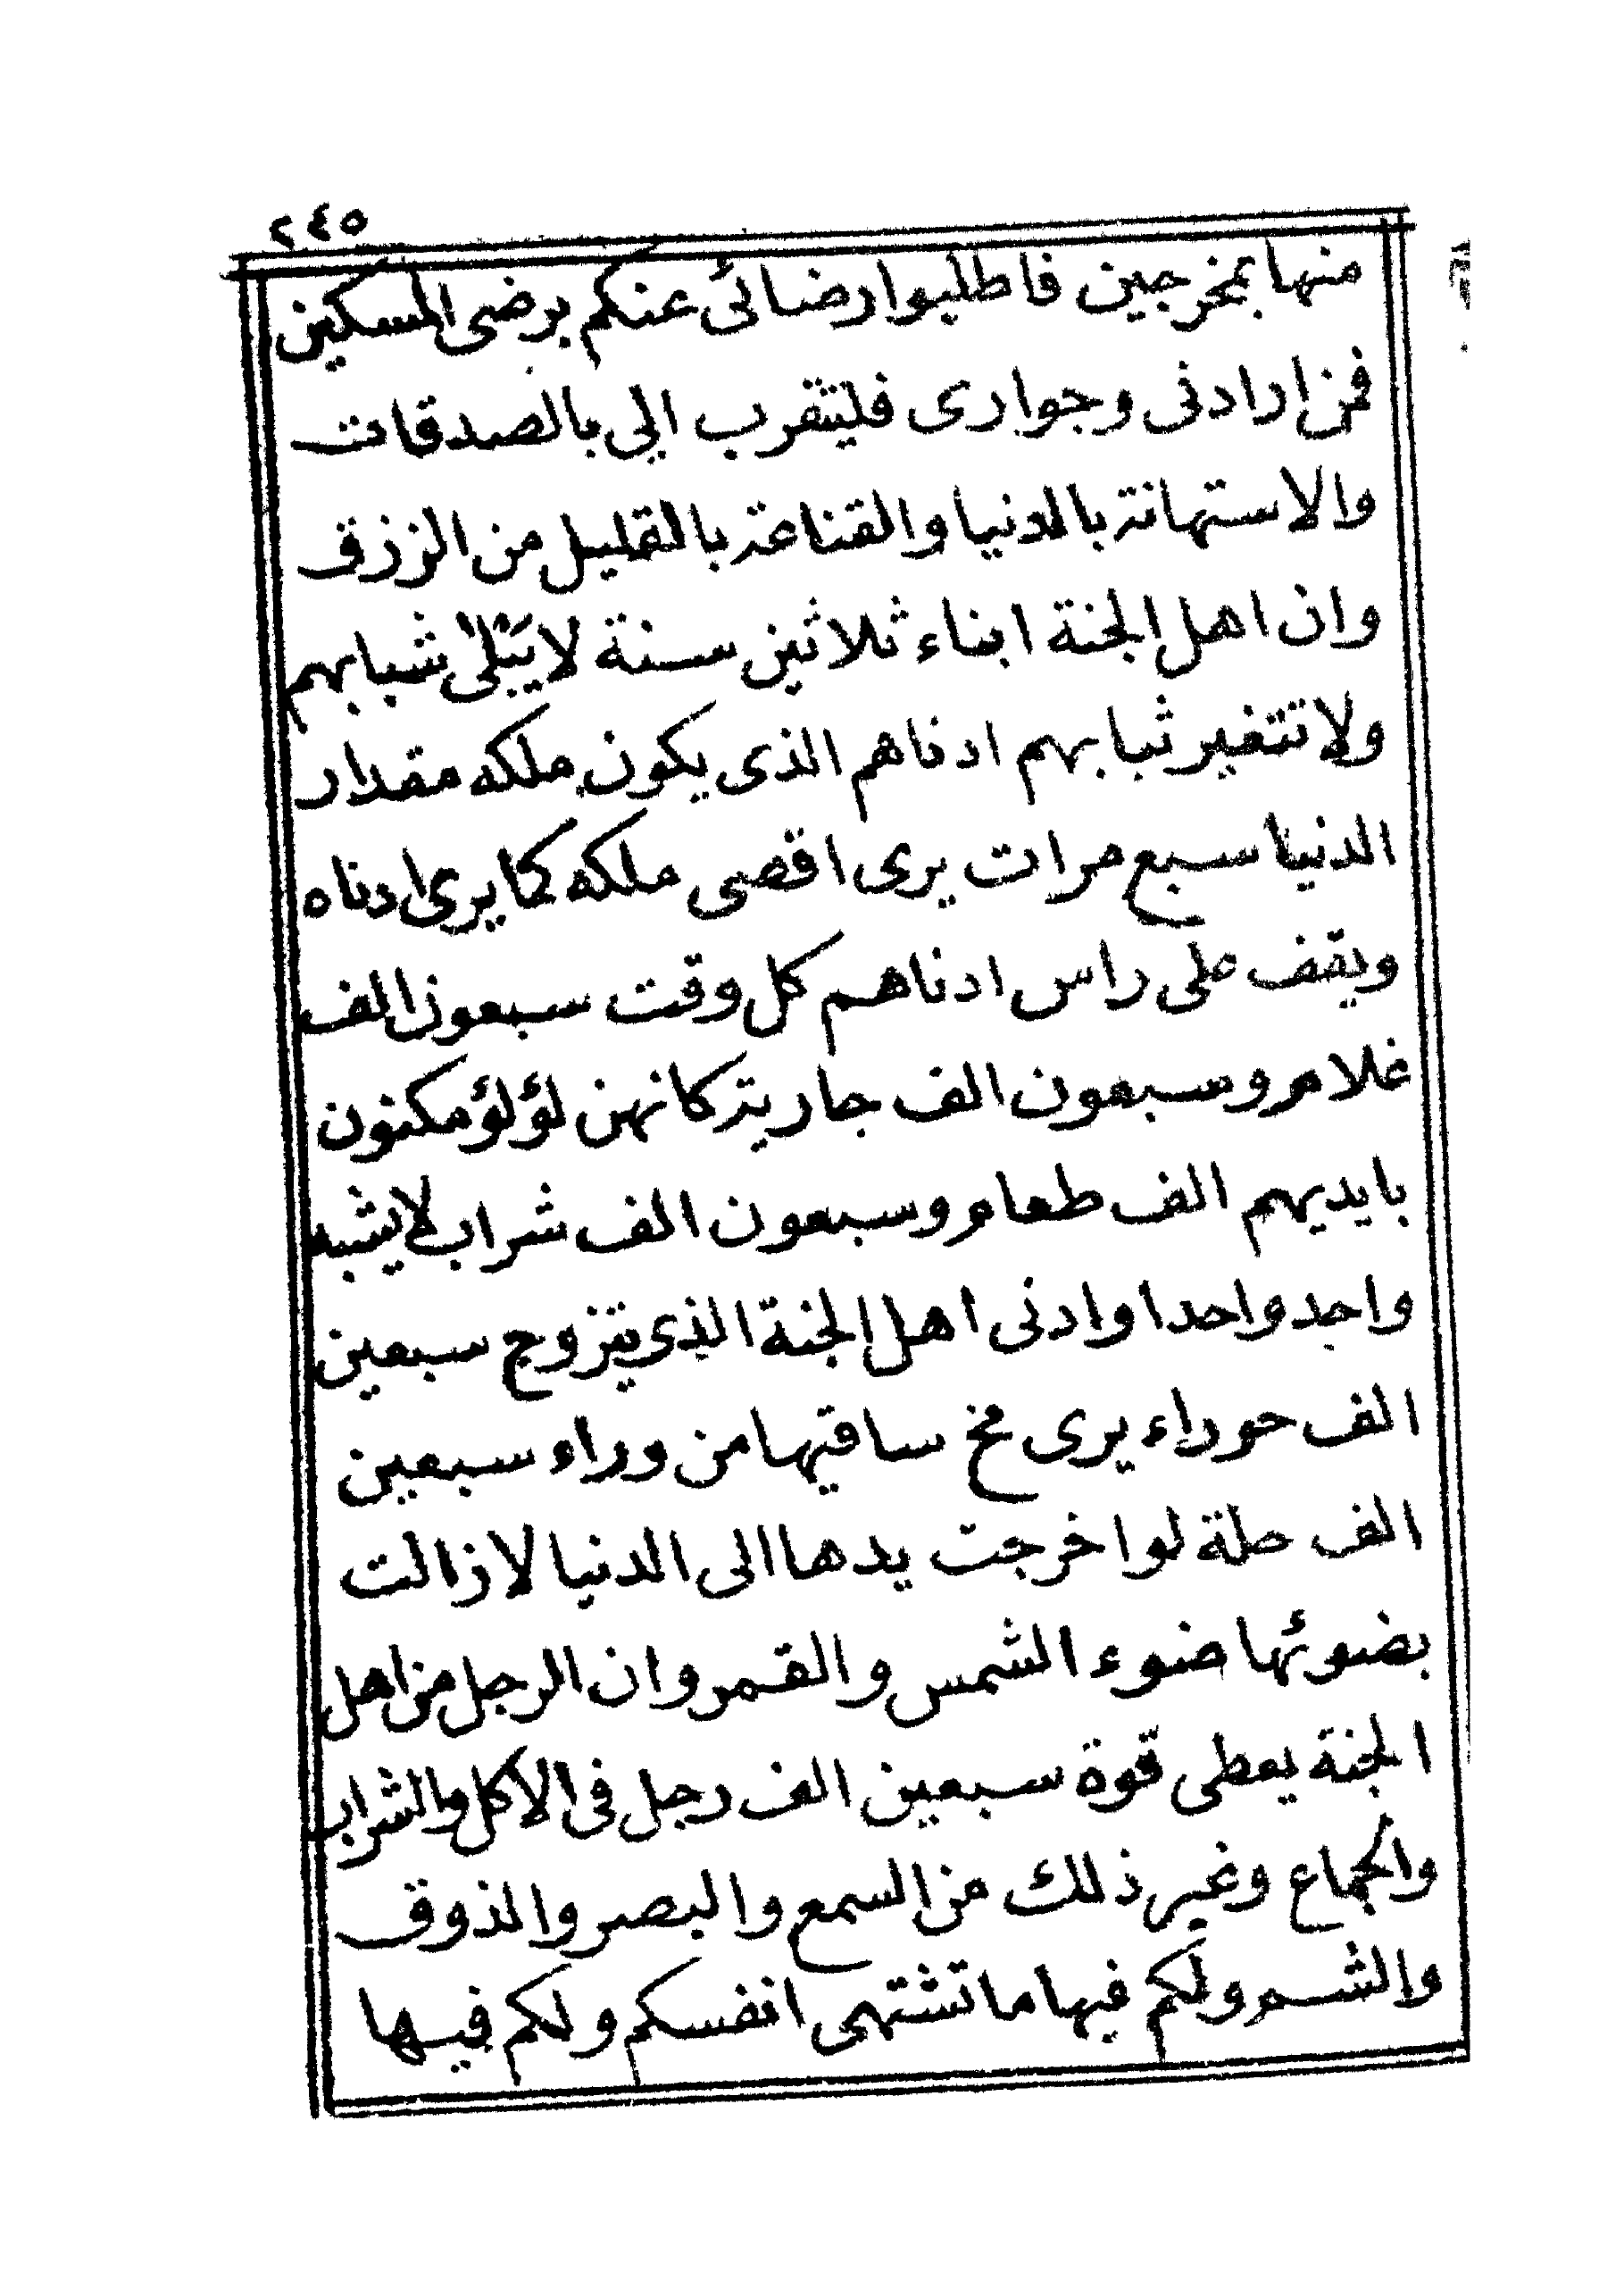 ٢٤٥
منها بمخرجين فاطلبوا رضائى عنكم برضى المسكين
فمن ارادنى وجوارى فليتقرب الي بالصدقات
والاستهانة بالدنيا والقناعة بالقليل من الرزق
وان اهل الجنة ابناء ثلاثين سنة لا يَبْلىٰ شبابهم
ولا تتغير ثيابهم ادناهم الذى يكون ملكه مقدار
الدنيا سبع مرات يرى اقصى ملكه كما يرى ادناه
ويقف على راس ادناهم كل وقت سبعون الف
غلام وسبعون الف جارية كانهن لؤلؤ مكنون
بايديهم الف طعام وسبعون الف شراب لا يشبه
واحد واحدا وادنى اهل الجنة الذى يتزوج سبعين
الف حوراء يرى مخ ساقيها من وراء سبعين
الف حلة لو اخرجت يدها الى الدنيا لازالت
بضوئها ضوء الشمس والقمر وان الرجل من اهل
الجنة يعطى قوة سبعين الف رجل فى الاكل والشراب
والجماع وغير ذلك من السمع والبصر والذوق
والشم ولكم فيها ما تشتهى انفسكم ولكم فيها